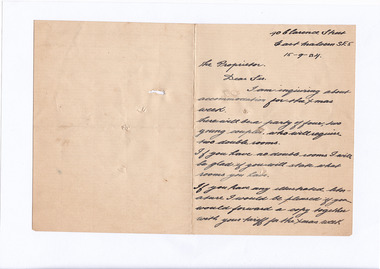 40 Clarence Street
East Malvern S.E.5
15-9-34.
The Proprietor.
Dear Sir.
I am inquiring about
accommodation for the Xmas
week.
There will be a party of four, two
young couples, who will require
two double rooms.
If you have no double rooms I will
be glad if you will state what
rooms you have.
If you have any illustrated liter-
ature I would be pleased if you
would forward a copy together
with your tariff for the Xmas week